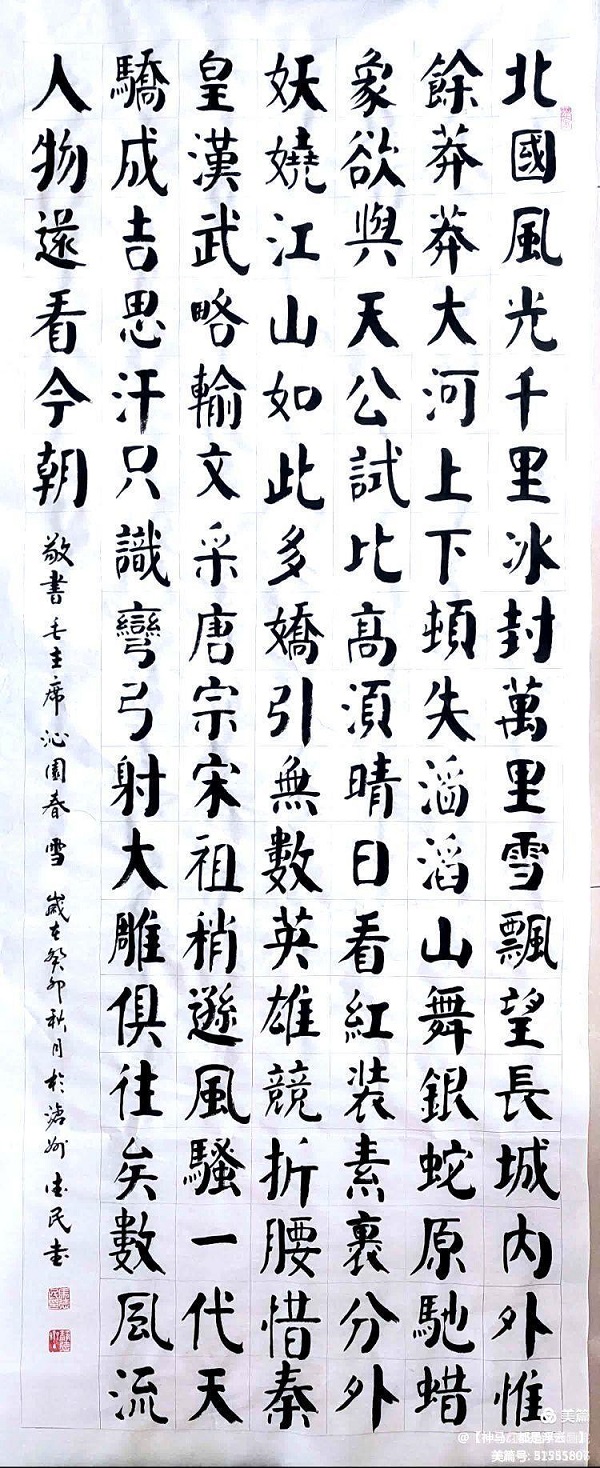 北國風光千里冰封萬里雪飄望長城內外惟
餘莽莽大河上下頓失滔滔山舞銀蛇原馳蜡
象欲與天公試比高須晴日看紅裝素裹分外
妖嬈江山如此多嬌引無數英雄競折腰惜秦
皇漢武略輸文采唐宗宋祖稍遜風騷一代天
驕成吉思汗只識彎弓射大雕俱往矣數風流
人物還看今朝
敬書毛主席沁園春雪 歲在癸卯秋月於滄州德民書
美篇
美篇号: